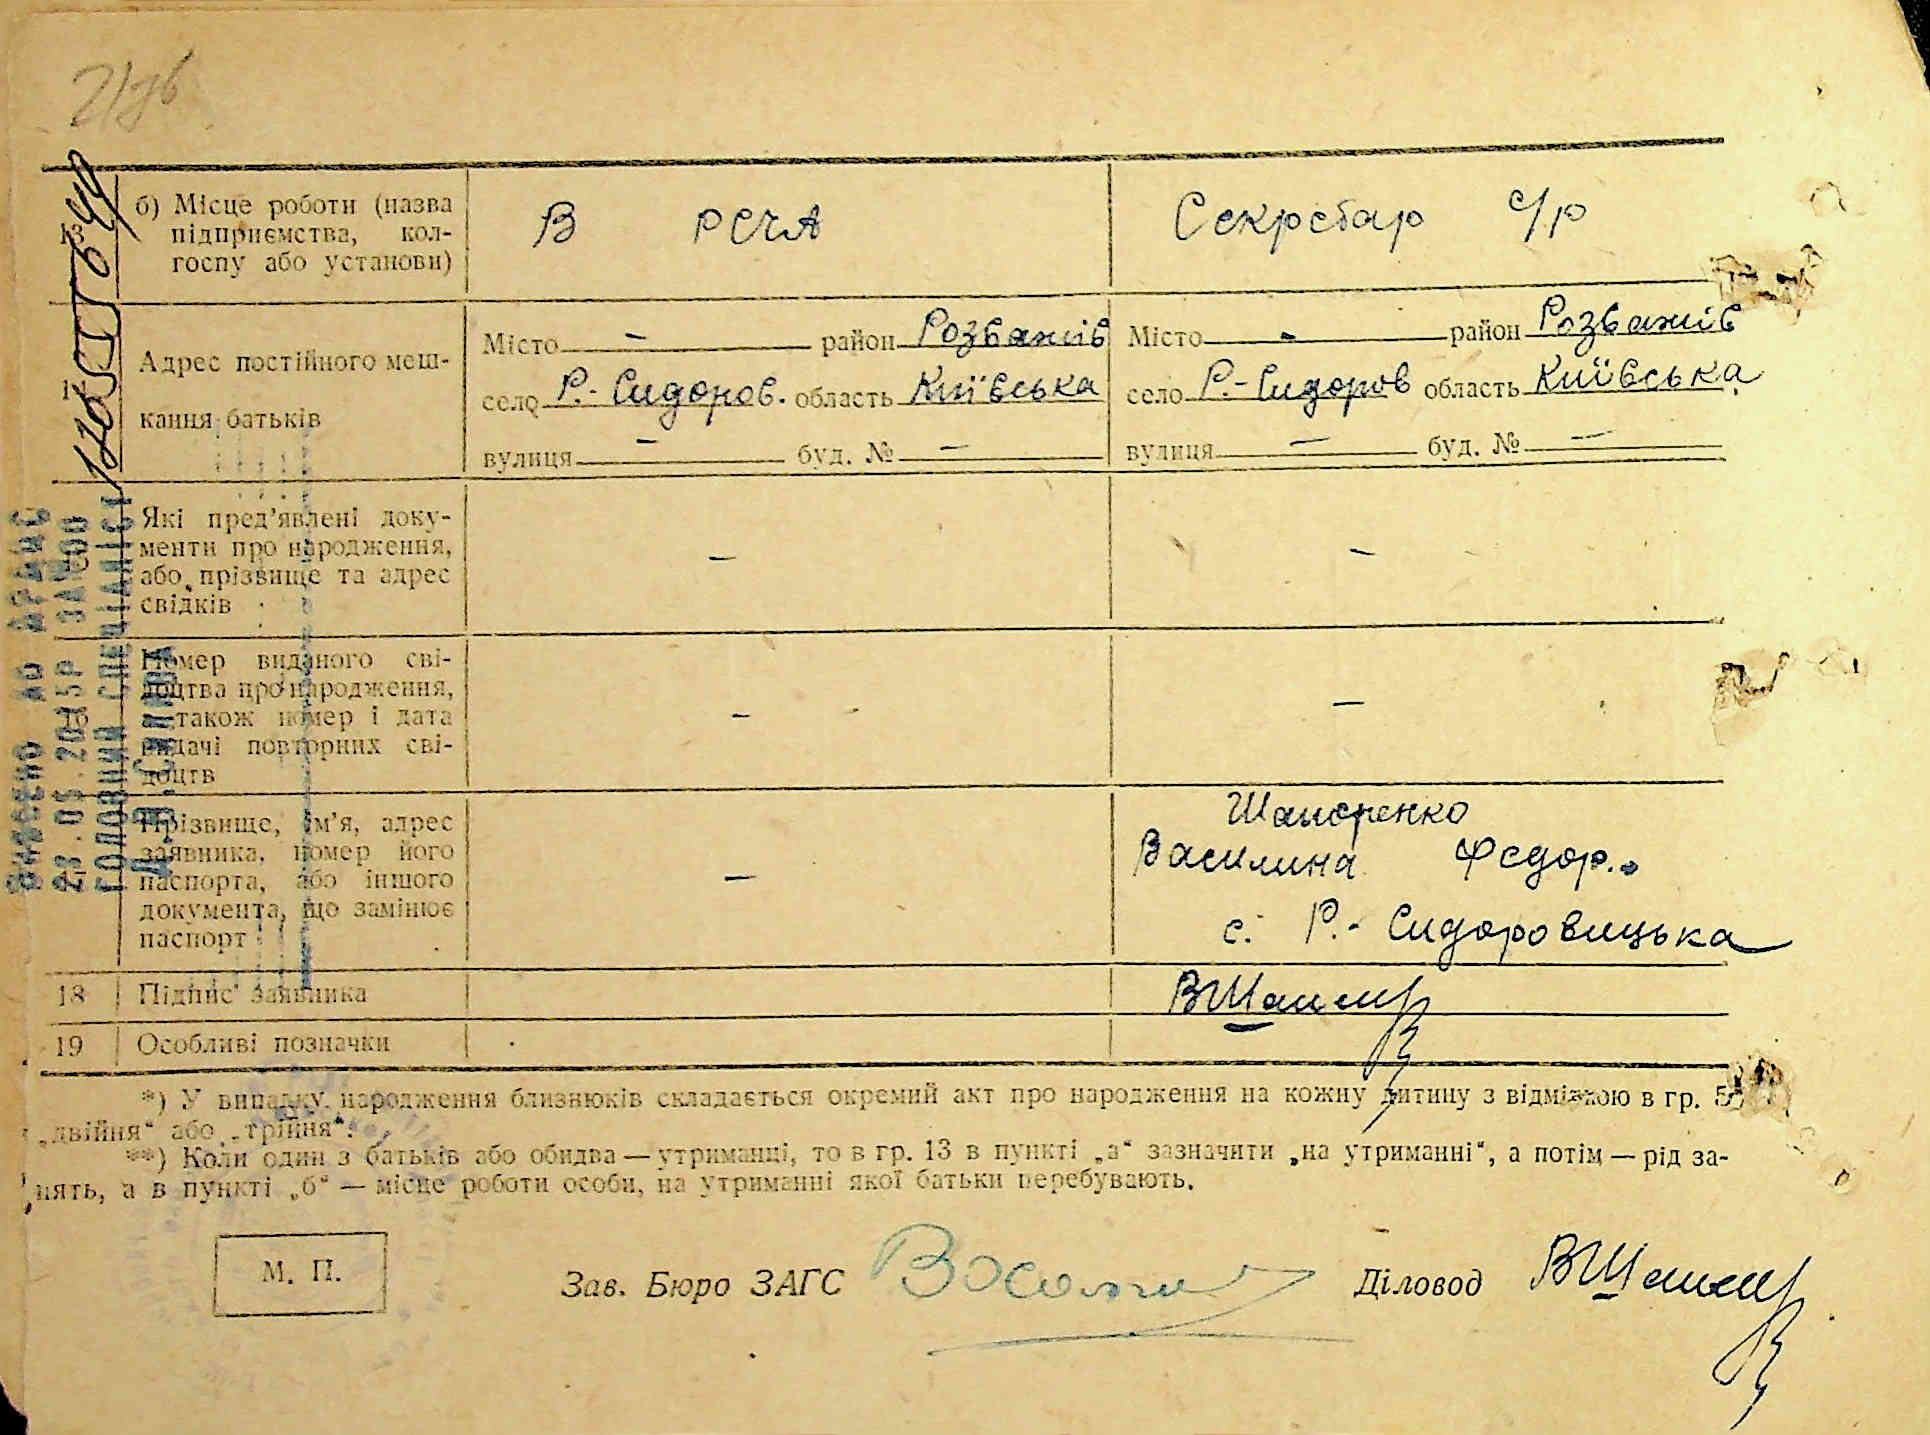 б) Місце роботи (назва
13 підприємства, кол-
госпу або установи)
В РСЧА
Секретар с/р
Адрес постійного меш-
кання батьків
Місто — район Розважів
село Р.-Сидоров. область Київська
вулиця — буд. № —
Місто — район Розважів
село Р.-Сидоров область Київська
вулиця — буд. № —
Які пред’явлені доку-
менти про народження,
або прізвище та адрес
свідків
—
—
Номер виданого сві-
доцтва про народження,
а також номер і дата
видачі повторних сві-
доцтв
—
—
Прізвище, ім’я, адрес
заявника, номер його
паспорта, або іншого
документа, що замінює
паспорт
—
Василина Федор.
с. Р.- Сидоровицька
18 Підпис заявника
19 Особливі позначки
*) У випадку народження близнюків складається окремий акт про народження на кожну дитину з відміткою в гр. 5
„двійня“ або „трійня“.
**) Коли один з батьків або обидва — утриманці, то в гр. 13 в пункті „а“ зазначити „на утриманні“, а потім — рід за-
нять, а в пункті „б“ — місце роботи особи, на утриманні якої батьки перебувають.
М. П.
Зав. Бюро ЗАГС
Діловод
ВНЕСЕНО ДО ДРАЦС
ГОЛОВНИЙ СПЕЦІАЛІСТ